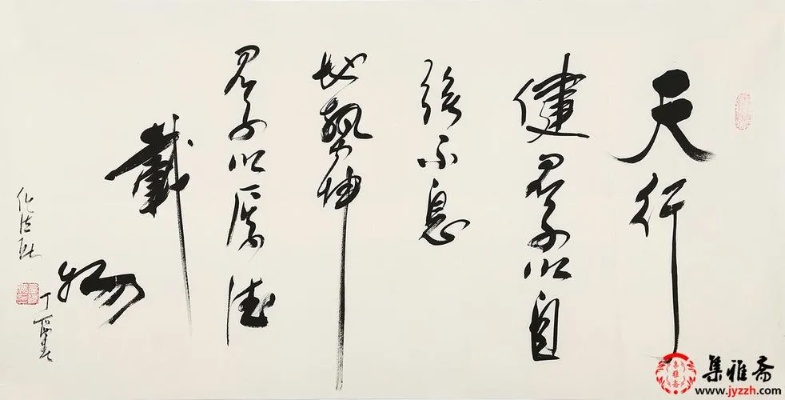 天行
健君子以自
強不息
地勢坤
君子以厚德
載物
丁酉春
集雅斋
www.jyzzh.com